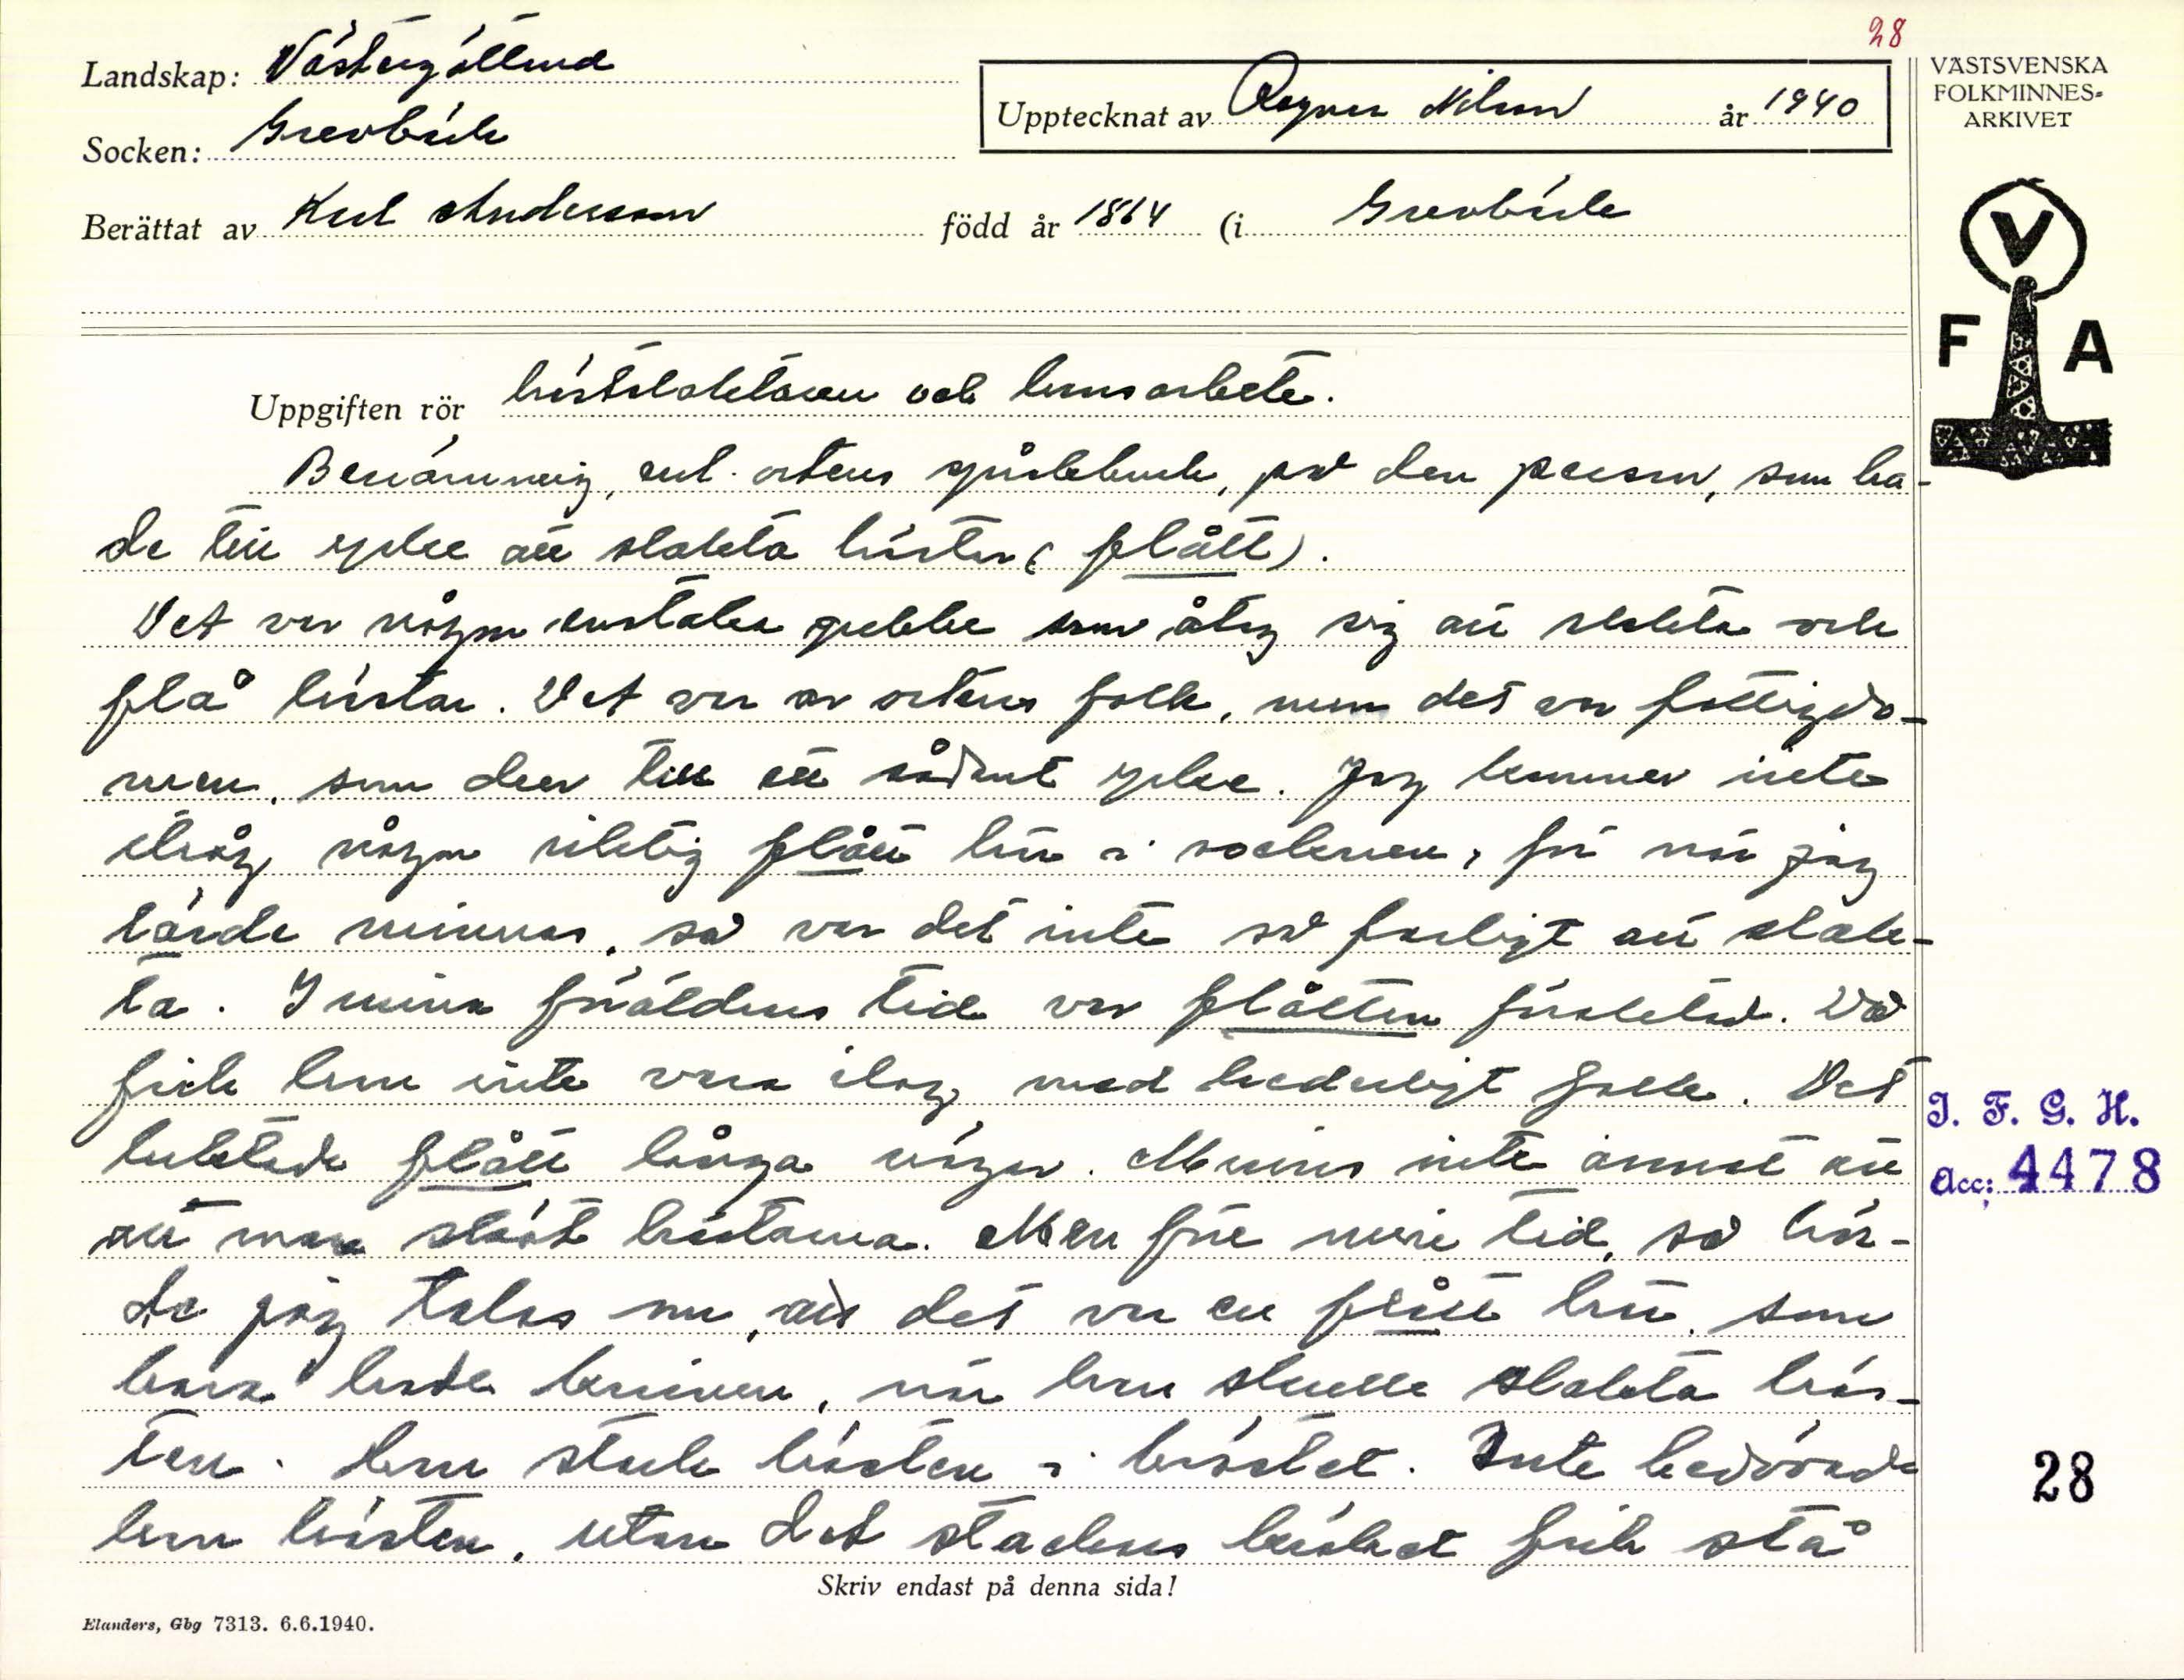 28
Landskap: Västergötland
Socken: Grevbäck
Berättat av Karl Andersson född år 1864 (i Grevbäck
Upptecknat av Ragnar Nilson år 1940
VÄSTSVENSKA
FOLKMINNES-
ARKIVET
V
F A
Uppgiften rör hästslaktaren och hans arbete.
Benämning, enl. ortens språkbruk, på den person, som ha-
de till yrke att slakta hästar (flått).
Det var någon enstaka gubbe som åtog sig att slakta och
flå hästar. Det var av ortens folk, men det var fattigdo-
men, som drev till ett sådant yrke. Jag kommer inte
ihåg någon riktig flått här i socknen, för när jag
lärde minnas, så var det inte så farligt att slak-
ta. I mina föräldrars tid var flåtten föraktad. Då
fick han inte vara ihop med hederligt folk. Det
luktade flått långa vägar. Minns inte annat än
att man sköt hästarna. Men före min tid, så hör-
de jag talas om, att det var en flått här, som
bara hade kniven, när han skulle slakta häs-
ten. Han stack hästen i bröstet. Inte bedövade
han hästen, utan det stackars kräket fick stå
Skriv endast på denna sida!
Elanders, Gbg 7313. 6.6.1940.
I. F. G. H.
Acc: 4478
28